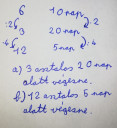 6 10 nap
:2 3 20 nap .2
.4 12 5 nap :4
a) 3 asztalos 20 nap
alatt végezne.
b) 12 asztalos 5 nap
alatt végezne.